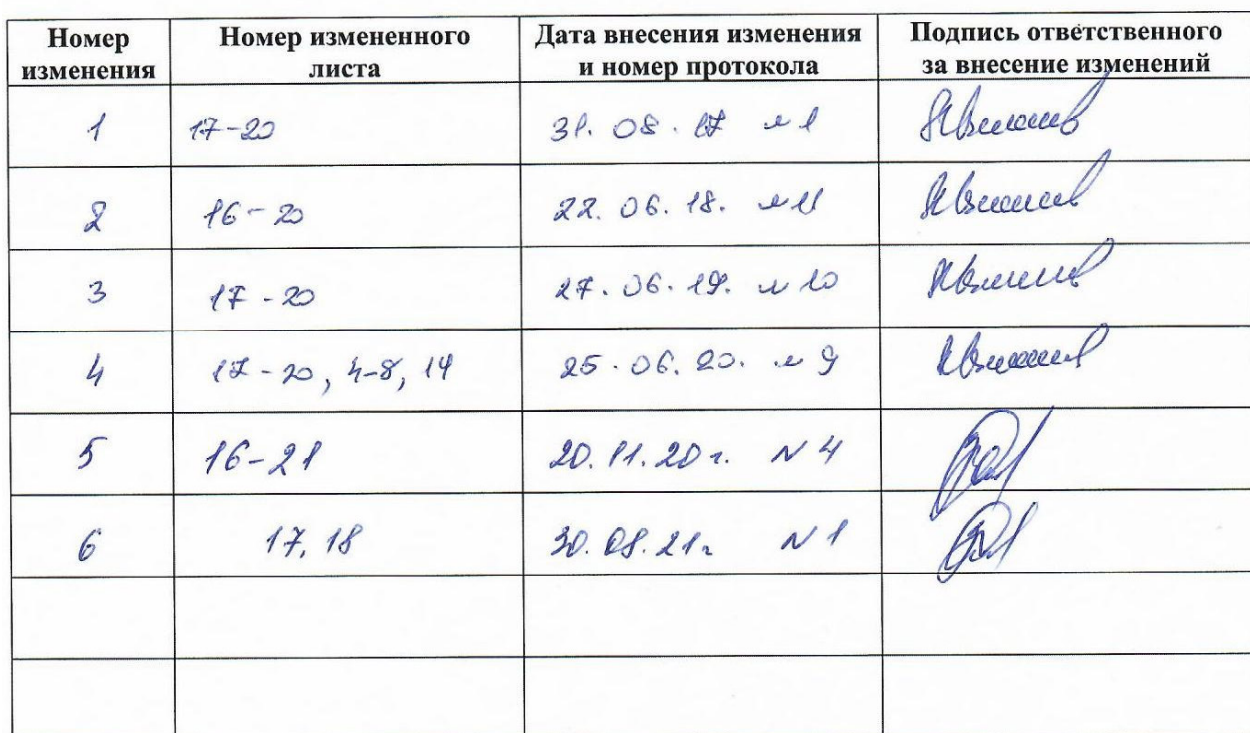 Номер изменения Номер измененного листа Дата внесения изменения и номер протокола Подпись ответственного за внесение изменений
1 17-20 31.08.17 №1
2 16-20 22.06.18. №11
3 17-20 27.06.19. №10
4 17-20, 4-8, 14 25.06.20. №9
5 16-21 20.11.20г. №4
6 17,18 30.08.21г №1